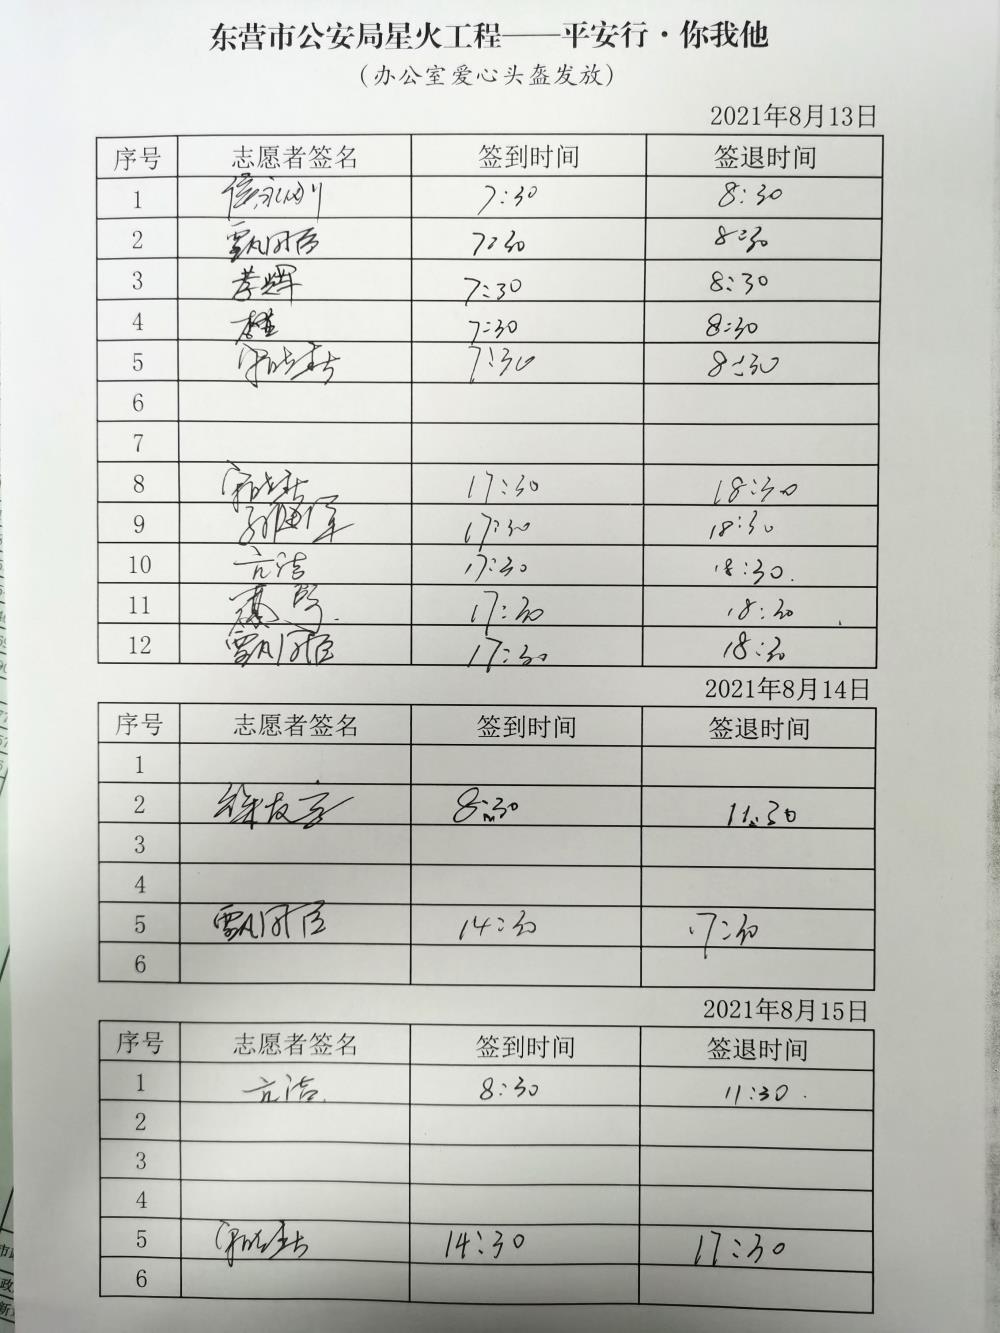 东营市公安局星火工程——平安行·你我他
(办公室爱心头盔发放)
2021年8月13日
序号 志愿者签名 签到时间 签退时间
1 7:30 8:30
2 7:30 8:30
3 7:30 8:30
4 7:30 8:30
5 7:30 8:30
6
7
8 17:30 18:30
9 17:30 18:30
10 亢洁 17:30 18:30.
11 17:30 18:30
12 17:30 18:30
2021年8月14日
序号 志愿者签名 签到时间 签退时间
1
2 8:30 11:30
3
4
5 14:30 17:30
6
2021年8月15日
序号 志愿者签名 签到时间 签退时间
1 亢洁. 8:30 11:30.
2
3
4
5 14:30 17:30
6